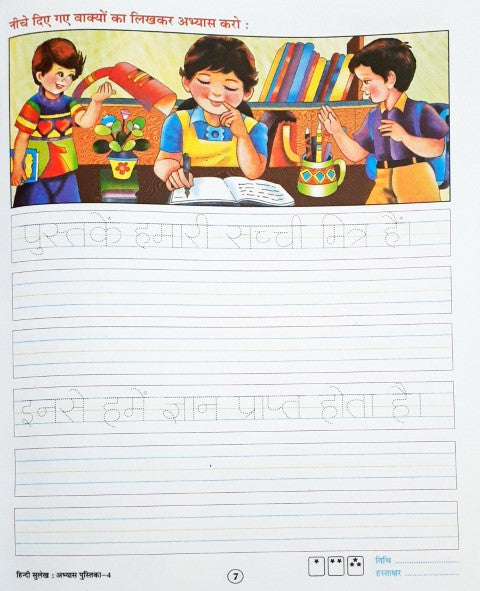 नीचे दिए गए वाक्यों का लिखकर अभ्यास करो :
पुस्तकें हमारी सच्ची मित्र हैं।
इनसे हमें ज्ञान प्राप्त होता है।
तिथि
हिन्दी सुलेख : अभ्यास पुस्तिका–4
7
हस्ताक्षर